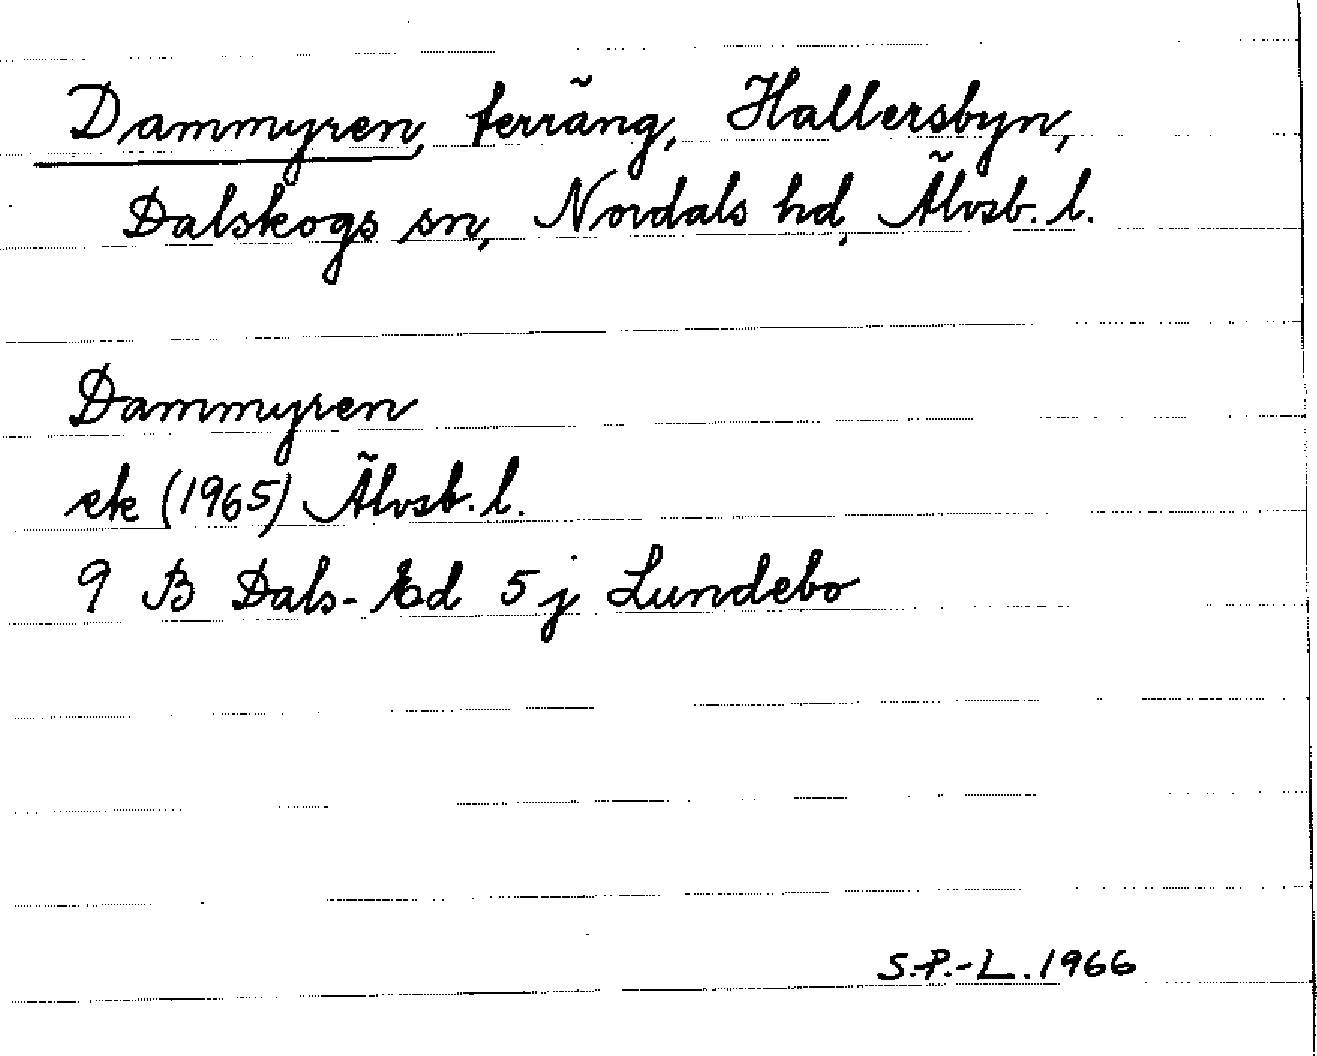 Dammyren, terräng, Hallersbyn,
Dalskogs sn, Nordals hd, Älvsb. l.
Dammyren
ek (1965) Älvsb. l.
9 B Dals-Ed 5 j Lundebo
S.P.-L. 1966